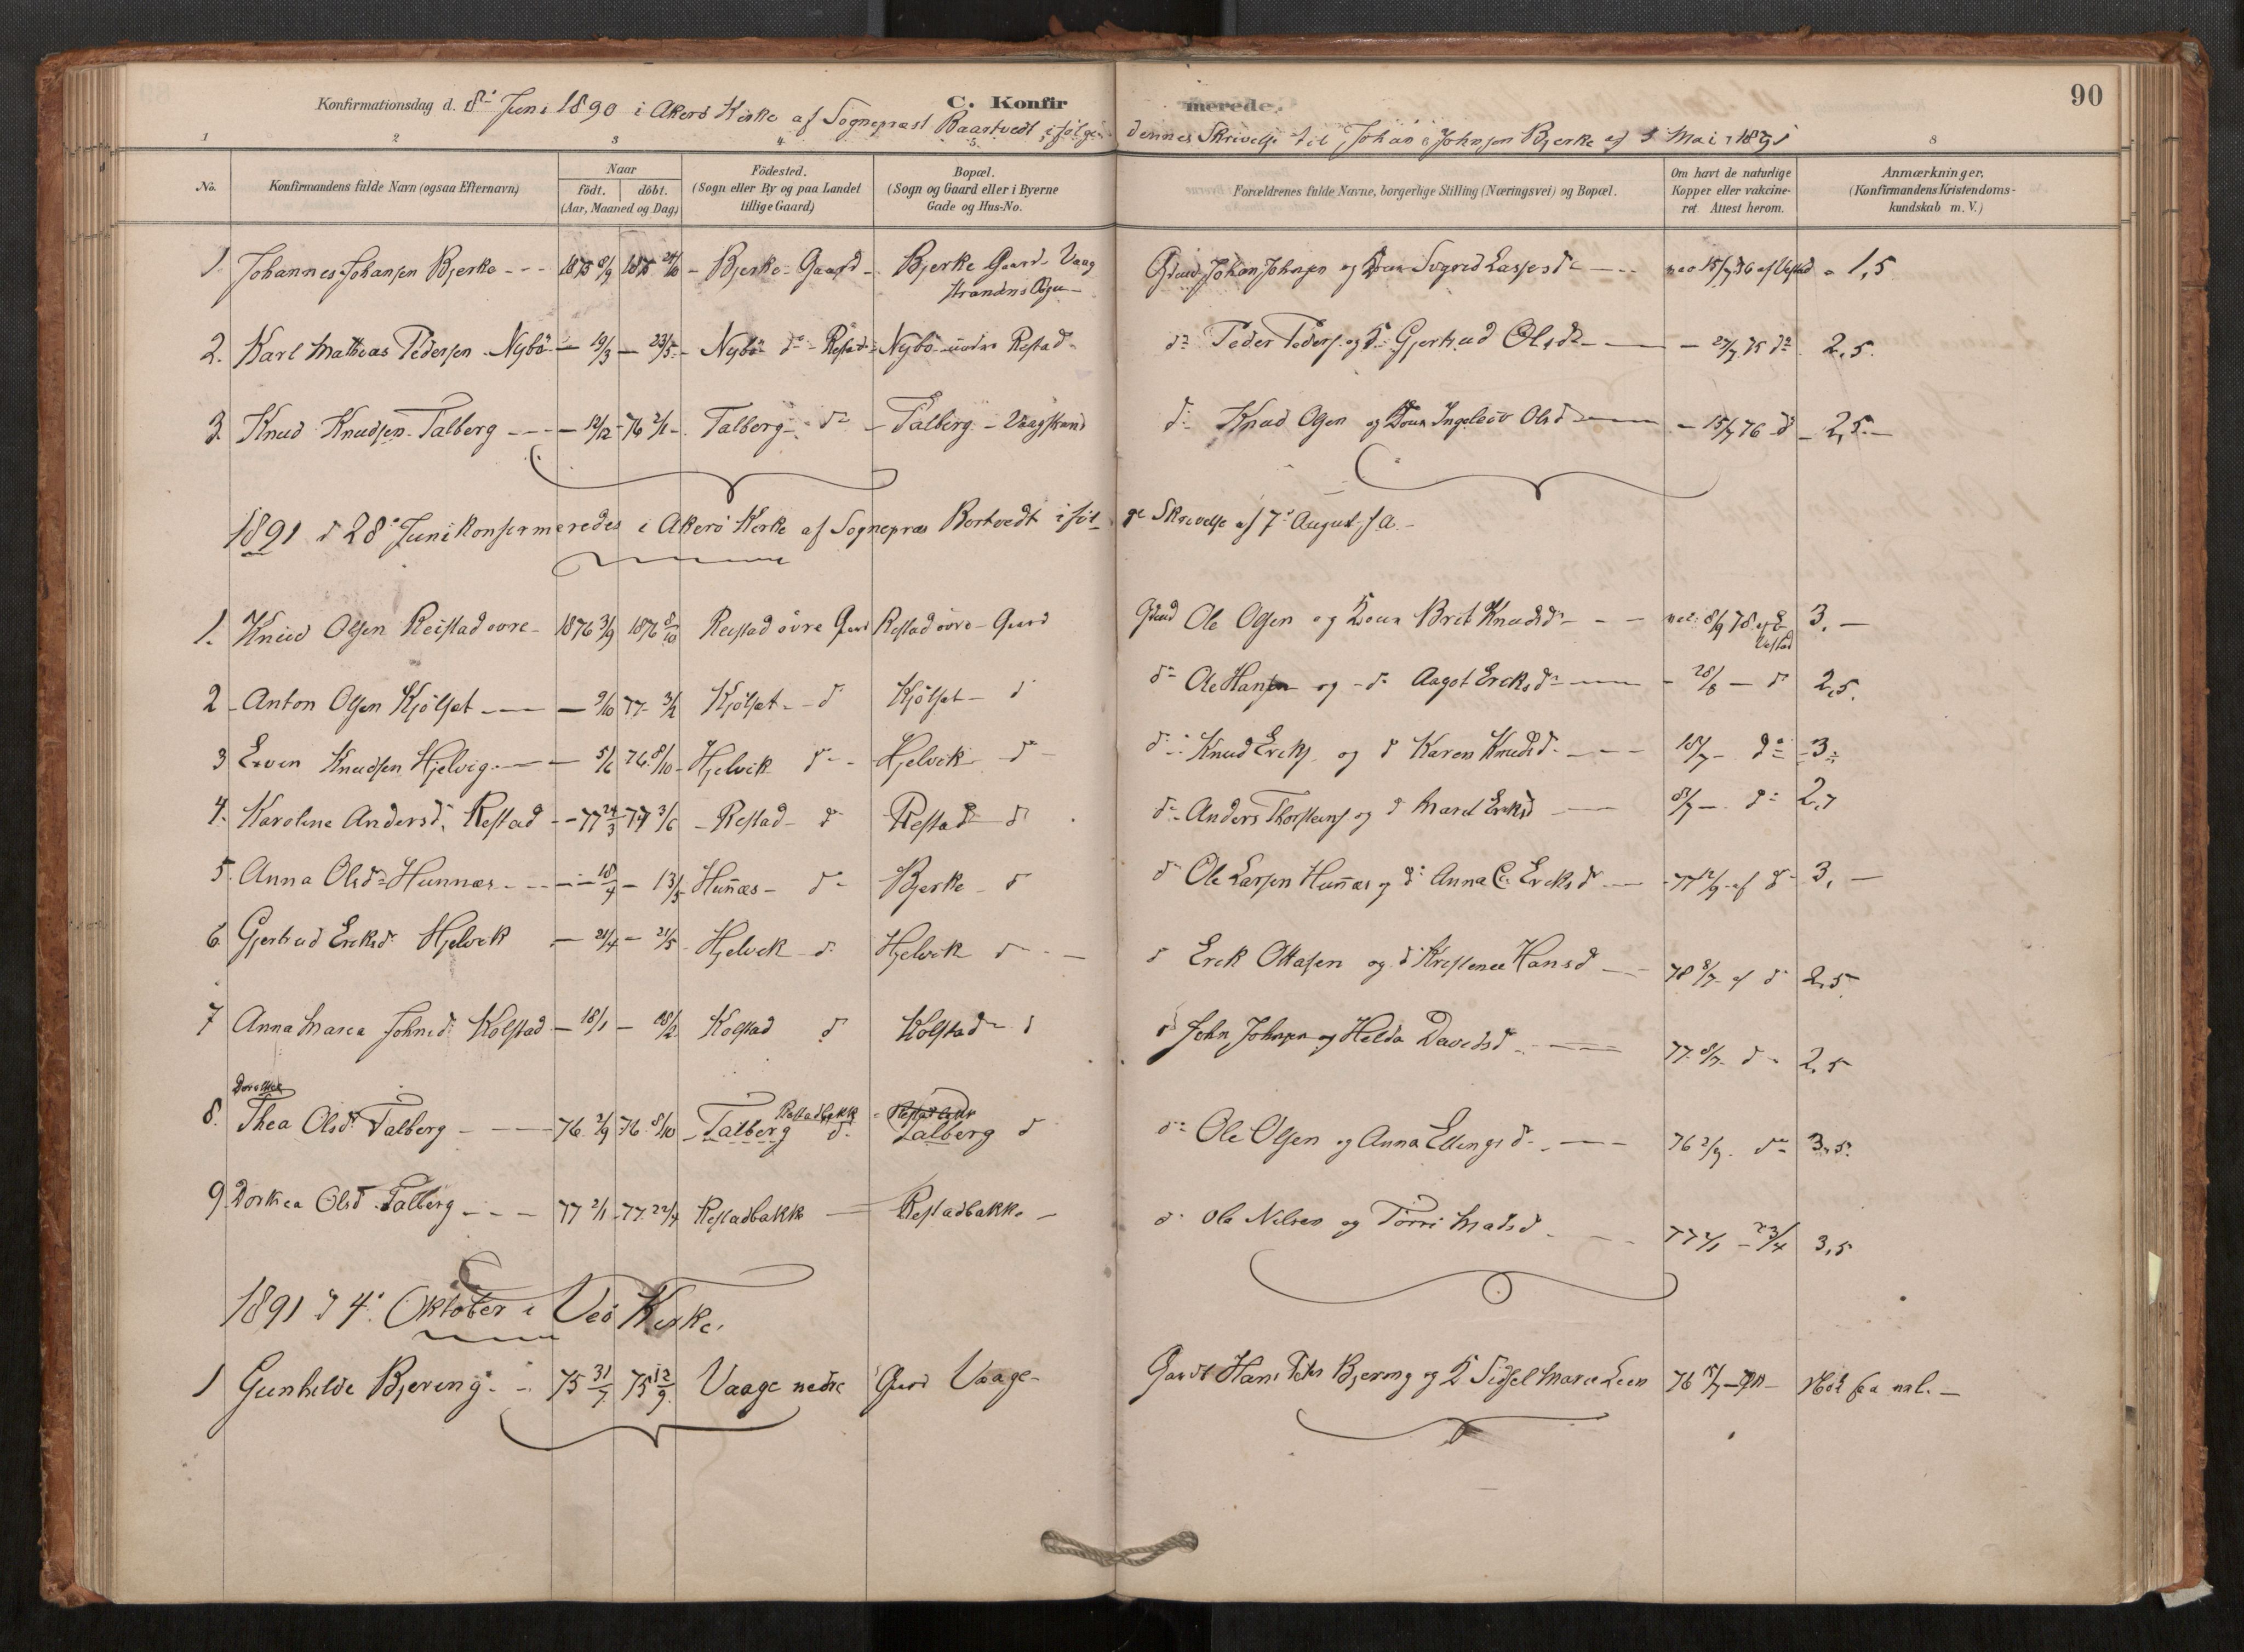 90
C. Konfir merede.
Konfirmationsdag d. 8de Juni 1890 i Akerö Kirke af Sogneprest Baastvedt ifölge dennes Skrivelse til Johan Johnsen Bjerke af 5 Mai 1891
1 2 3 4 5 8
No. Konfirmandens fulde Navn (ogsaa Efternavn) Naar födt. döbt. (Aar, Maaned og Dag) Födested. (Sogn eller By og paa Landet tillige Gaard) Bopæl. (Sogn og Gaard eller i Byerne Gade og Hus-No. Forældrenes fulde Navne, borgerlige Stilling (Næringsvei) og Bopæl. Om havt de naturlige Kopper eller vakcineret. Attest herom. Anmærkninger. (Konfirmandens Kristendomskundskab m. V.)
1 Johannes Johansen Bjerke - - - 1875 8/9 1875 24/10 - Bjerke - Gaard - Bjerke Gaard - Vaag Strandens Gdmd Johan Johnsen og Kone Sigrid Lassesd - vac 15/7 76 af Vestad - 1,5
2. Karl Mathias Pedersen Nybö - 19/3 - 23/5 - Nybö do - Restad - Nybö - under Restad - do Peder Peders. og K. Gjertrud Olsd - 27/7 75 do 2,5.
3. Knud Knudsen Talberg - - - 12/12 - 76 2/1 - Talberg - do - Talberg - Vaagstrand do Knud Olsen og Kone Ingeleiv Olsd - 15/7 76 d - 2,5. -
1891 d 28de Juni konfirmeredes i Akerö Kirke af Sognepres Bortvedt iföl ge Skrivelse af 7de August s. A. -
1. Knud Olsen Reistad övre - 1876 3/9 1876 8/10 Reistad övre Gaard Restad övre - Gaard Gdmd Ole Olsen og Kone Brit Knudsd - - - vac: 8/9 78 af E Vestad 3. -
2 - Anton Olsen Kjölset - - 9/10 77 - 3/2 Kjölset - - d Kjölset - d do Ole Hansen og - do Aagot Ericksd - 28/8 - d 2,5.
3 Even Knudsen Hjelvig - - 5/6 76. 8/10 - Hjelvik do - Hjelvik do - do Knud Ericks. og d Karen Knudsd. - - 18/7 - do 3
4. Karoline Andersd. Restad - - 77 24/3 - 77 3/6 - Restad - d Restad d do Anders Thorsteins. og d Marit Ericksd - 8/7 - do 2,7
5. Anna Olsd Hunnæs - - - 18/4 - 13/5 Hunæs - do Bjerke - d do Ole Larsen Hunæs og do Anna C. Ericksd - 77 12/9 - af d - 3, -
6. Gjertrud Ericksd Hjelvik - 21/4 - 21/5 - Hjelvik - d Hjelvik d - - d Erick Ottosen og d Kristence Hansd - 78 8/7 af d 2,5
7 Anna Marea Johnsd Kolstad - 18/1 - 28/2 Kolstad d Kolstad - d d John Johnsen og Hilda Davidsd - 77. 8/7 - d - 2,5
8. Dorothea Thea Olsd Talberg - - 76 2/9 76 8/10 - Restadbakk Talberg d. - Restadbakk Talberg d do Ole Olsen og Anna Ellingsd. - - 76 2/9. do 3,5.
9. Dorthea Olsd Talberg - - - 77 2/1 77 22/4 Restadbakk - Restadbakk. - d. Ole Nilsen og Törri Madsd. - - 77 2/1 - 23/4 3,5
1891 d 4de Oktober i Veö Kirke.
1 Gunhilde Bjering. - 75 31/7 75 12/9 Vaage nedre Gaard Vaage - Gaardt Hans Peter Bjering og K Sidsel Marie Leen 76 15/7 - M. fra nal. -